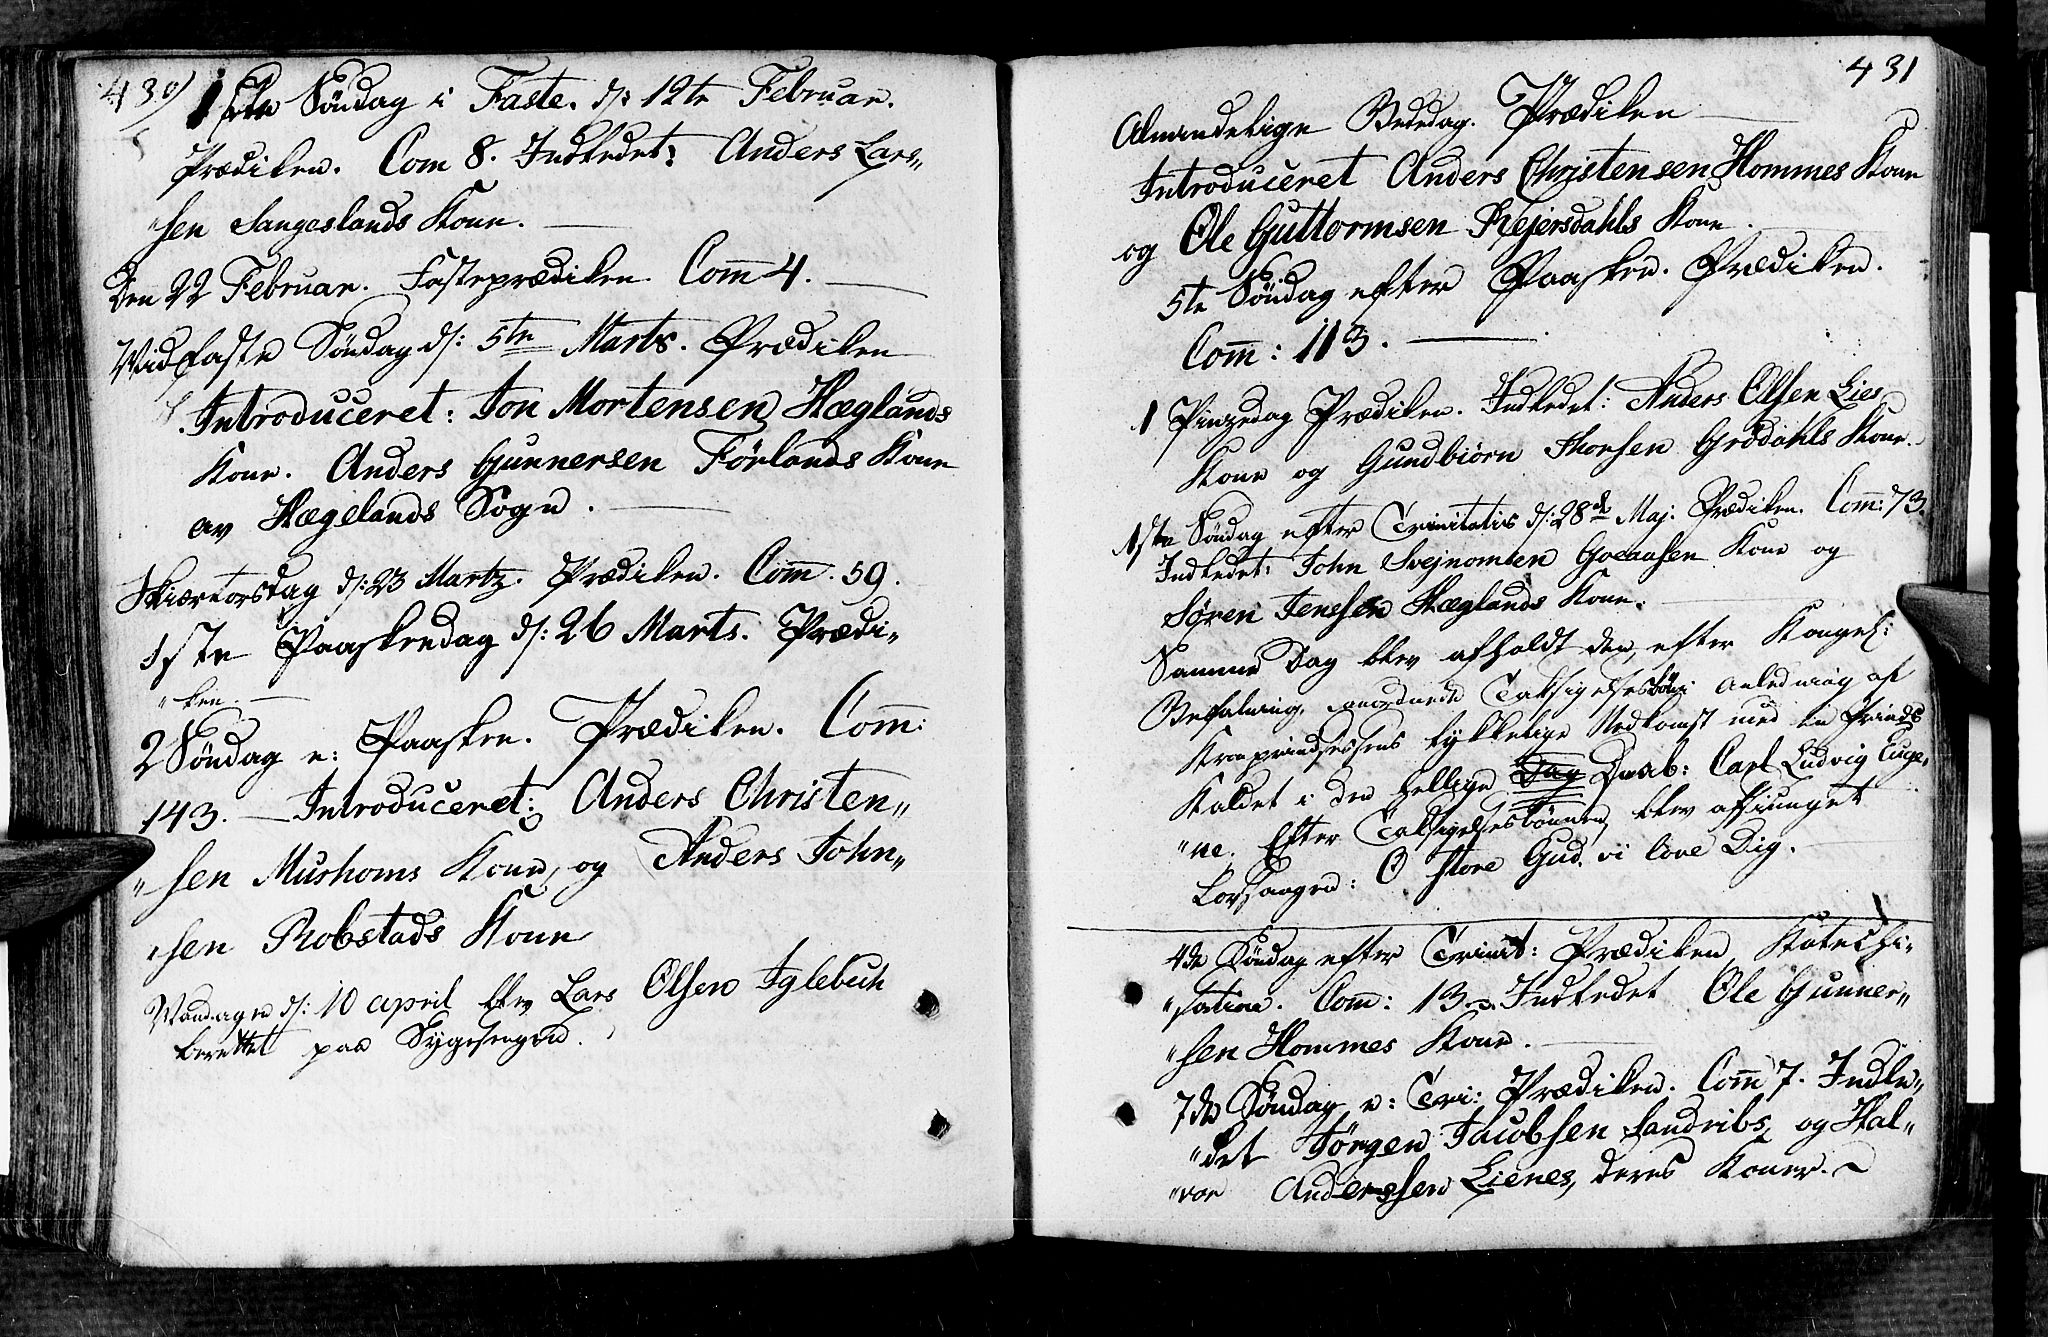 430)
1ste Søndag i Faste. d: 12te Februar.
Prædiken. Com 8. Indledet: Anders Lars„
„sen Langeslands Kone.
Den 22 Februar. Fasteprædiken Com̅ 4.
Midfaste Søndag d: 5te Marts. Prædiken
Introduceret: Jon Mortensen Hæglands
Kone. Anders Gunnersen Førlands Kone
av Hægelands Sogn.
Skiærtorsdag d: 23 Martz. Prædiken. Com̅. 59.
1ste Paaskedag d: 26 Marts. Prædi„
„ken.
2 Søndag e: Paasken. Prædiken. Com̅:
143. Introduceret: Anders Christen„
„sen Mushoms Kone, og Anders John„
„sen Robstads Kone
Mandagen d: 10 april blev Lars Olsen Iglebech
berettet paa Sygesengen.
431
Almindelige Bededag. Prædiken
Introduceret Anders Christensen Hommes Kone
og Ole Guttormsen Rejersdahls Kone.
5te Søndag efter Paasken. Prædiken.
Com̅: 113.
1 Pinzedag Prædiken. Indledet: Anders Olsen Lies
Kone og Gundbiørn Thorsen Grødahls Kone.
1ste Søndag efter Trinitatis d: 28de Maj. Prædiken. Com̅: 73.
Indledet: John Svejnomsen Kone og
Søren Jensen Hæglands Kone.
Samme Dag blev afholdt den, efter Kongel:
Befalning, anordnede Taksigelsesbøn i Anledning af
Kronprindsessens lykkelige Nedkomst med en Prinds
Kaldet i den hellige Dag Daab: Carl Ludvig Euge„
„ne. Efter Taksigelsesbønnen, blev afsiunget
Lovsangen: O store Gud vi love Dig.
4de Søndag efter Trinit: Prædiken Katechi„
„sation. Com̅: 13. Indledet Ole Gunner„
„sen Hommes Kone.
7de Søndag e: Tri: Prædiken. Com̅ 7. Indle„
„det Jørgen Jacobsen Sandribs, og Hal„
„vor Anderssen Lienes, deres Koner.